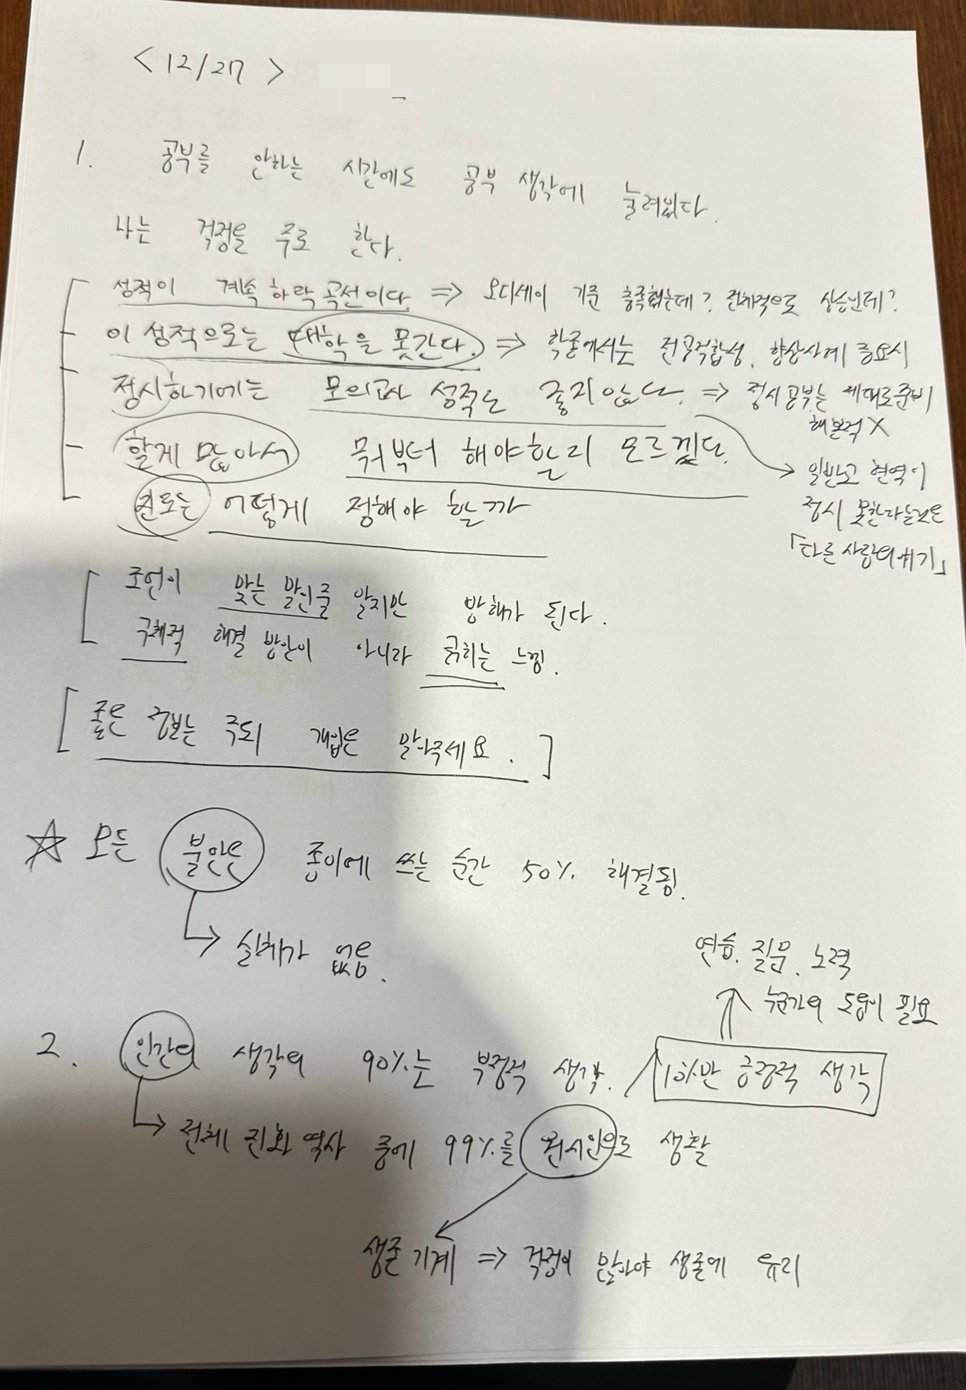 < 12/27 >
1. 공부를 안하는 시간에도 공부 생각에 눌려있다.
나는 걱정을 주로 한다.
성적이 계속 하락 곡선이다 ⇒ 오디세이 기준 충족했는데? 전체적으로 상승인데?
이 성적으로는 대학을 못간다. ⇒ 학종에서는 전공적합성, 향상사례 중요시
정시하기에는 모의고사 성적도 좋지않다. ⇒ 정시공부는 제대로준비
해본적 X
할게 많아서 뭐부터 해야할지 모르겠다.
→ 일반고 현역이
정시 못한다는것은
「다른 사람의 얘기」
진로는 어떻게 정해야 할까
조언이 맞는 말인줄 알지만 방해가 된다.
구체적 해결 방안이 아니라 긁히는 느낌.
[ 좋은 정보는 주되 개입은 말아주세요. ]
☆ 모든 불안은 종이에 쓰는 순간 50% 해결됨.
→ 실체가 없음.
연습. 질문. 노력
누군가의 도움이 필요
2. 인간의 생각의 90%는 부정적 생각. / 10%만 긍정적 생각
→ 전체 진화 역사 중에 99%를 원시인으로 생활
생존 기계 ⇒ 걱정이 많아야 생존에 유리